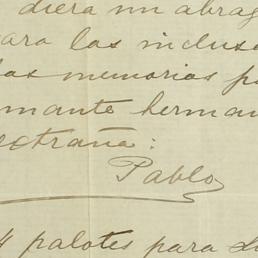 diera un abra
ara las incluse
las memorias p
mante herman
extraña:
Pablo
4 palotes para